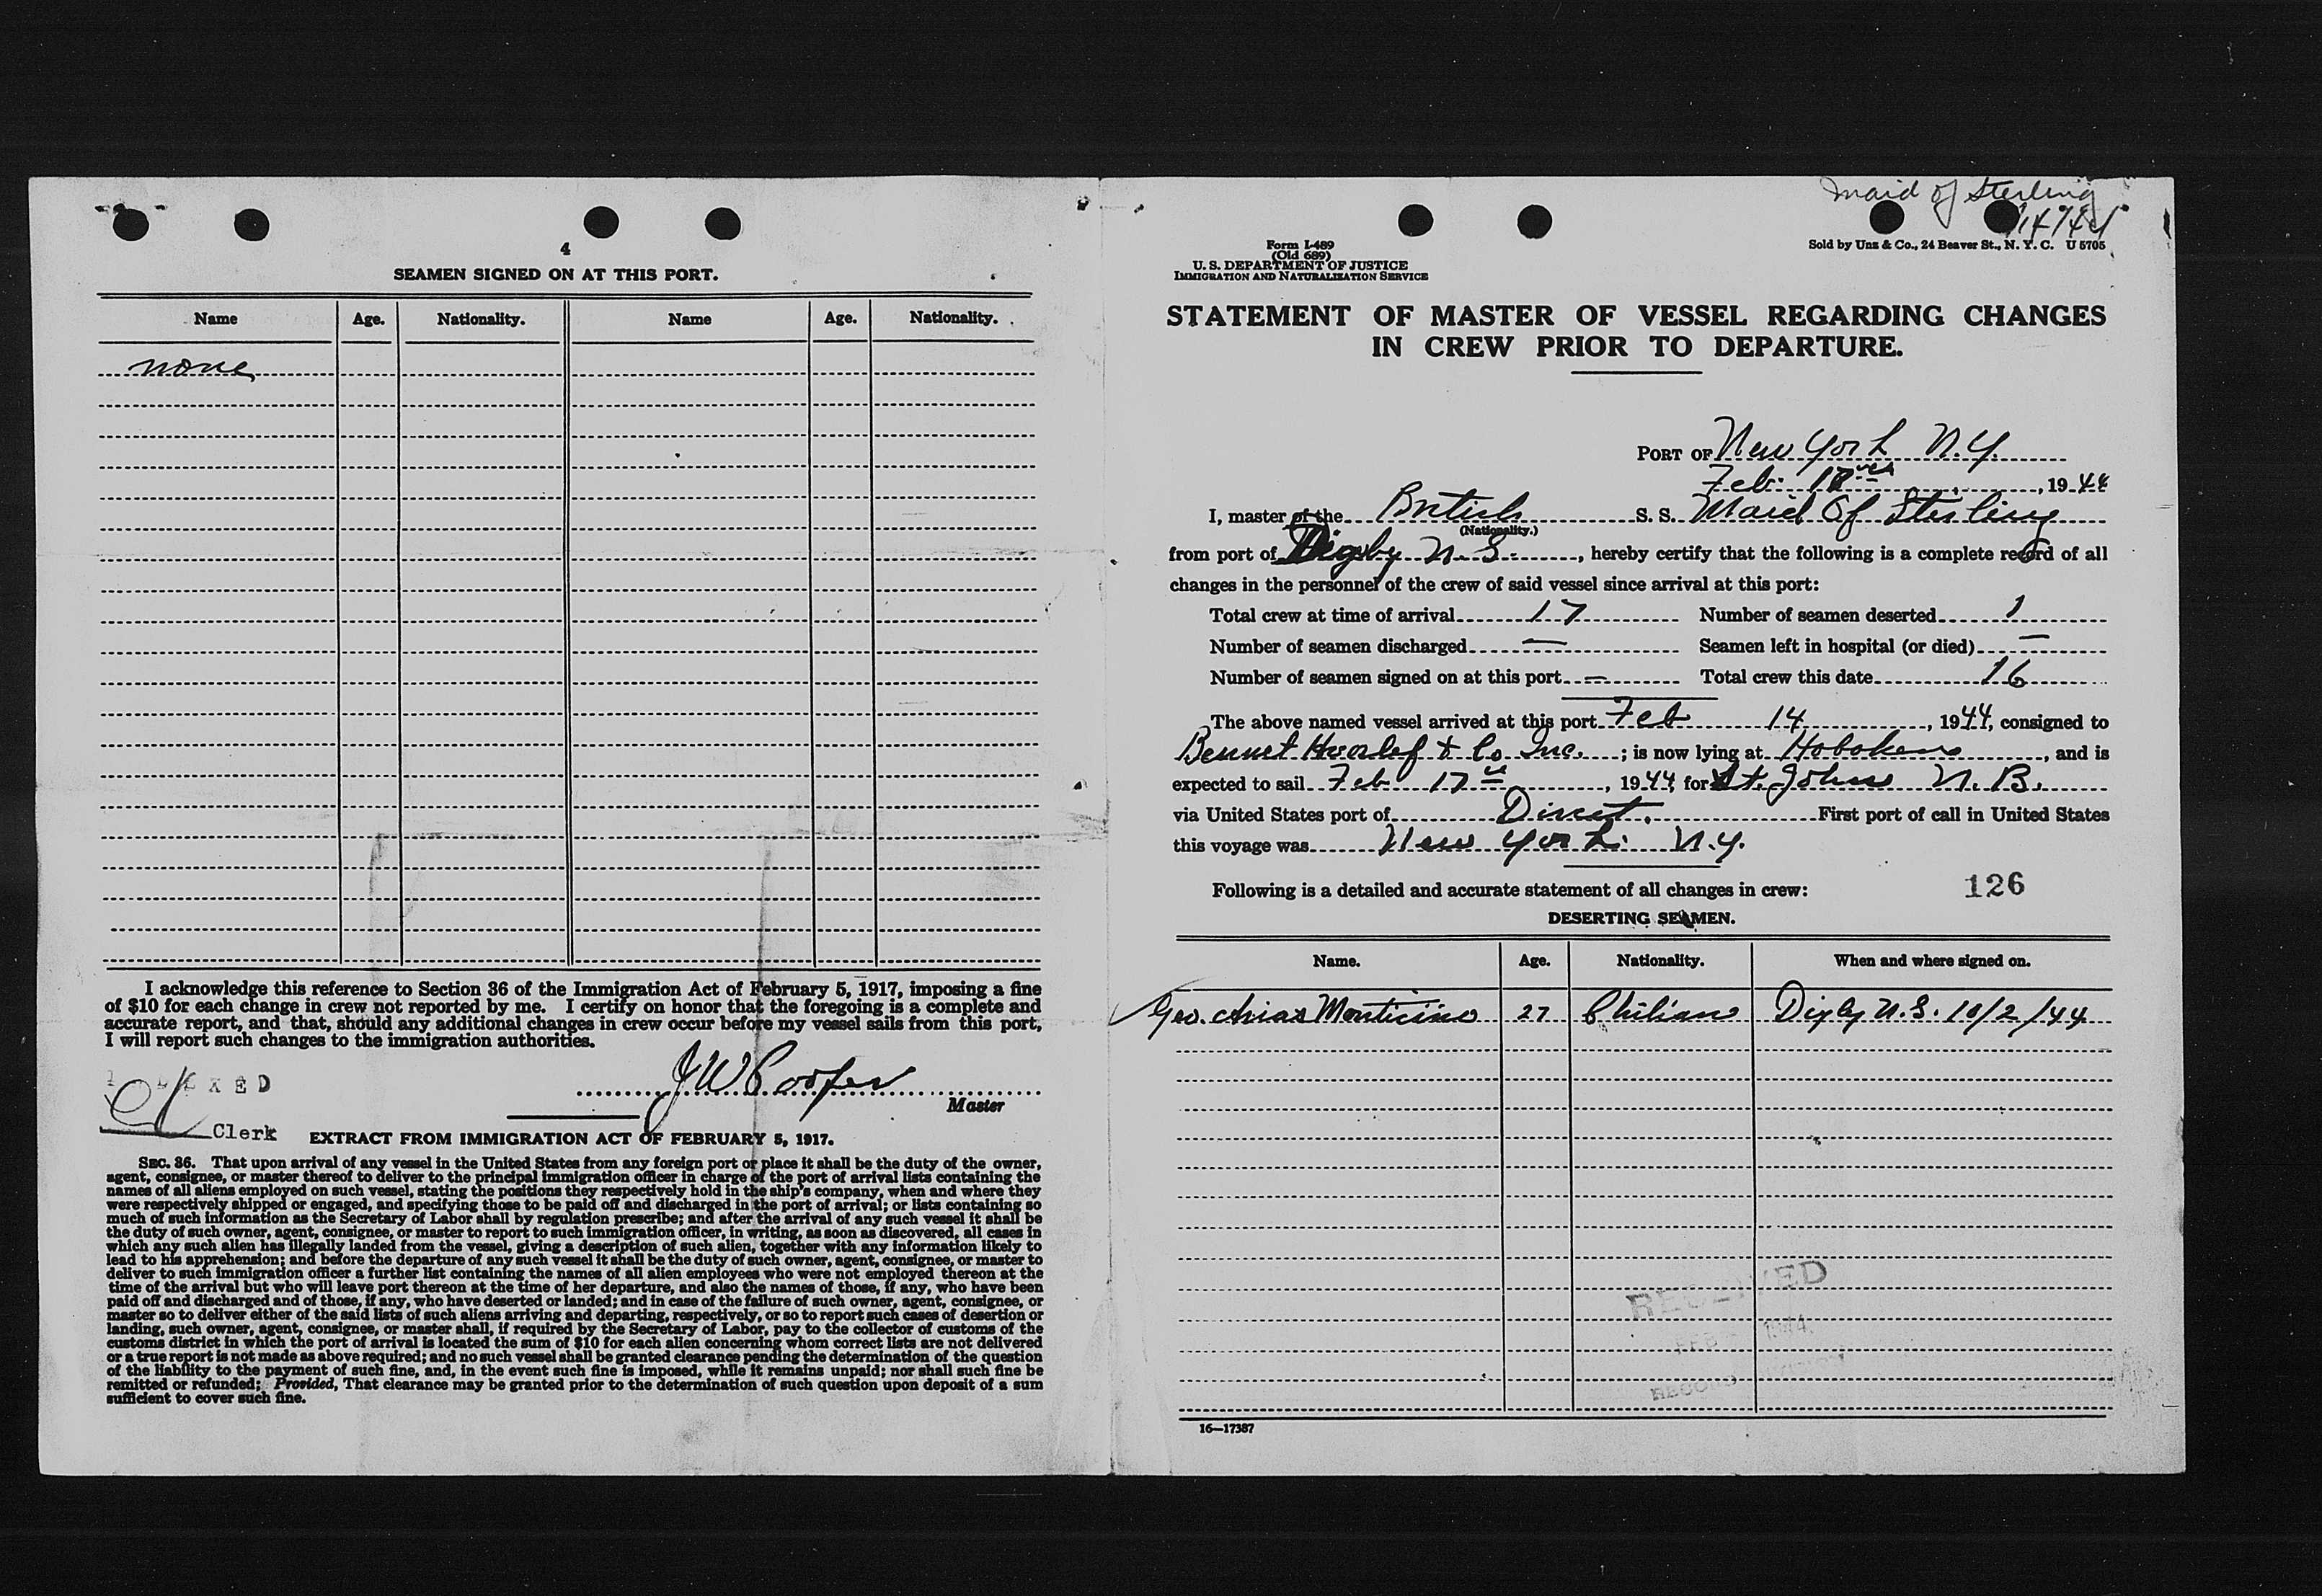 4
SEAMEN SIGNED ON AT THIS PORT.
Name Age. Nationality. Name Age. Nationality.
none
I acknowledge this reference to Section 36 of the Immigration Act of February 5, 1917, imposing a fine
of $10 for each change in crew not reported by me. I certify on honor that the foregoing is a complete and
accurate report, and that, should any additional changes in crew occur before my vessel sails from this port,
I will report such changes to the immigration authorities.
J W Cooper
Master
Clerk
EXTRACT FROM IMMIGRATION ACT OF FEBRUARY 5, 1917.
SEC. 36. That upon arrival of any vessel in the United States from any foreign port or place it shall be the duty of the owner,
agent, consignee, or master thereof to deliver to the principal immigration officer in charge of the port of arrival lists containing the
names of all aliens employed on such vessel, stating the positions they respectively hold in the ship's company, when and where they
were respectively shipped or engaged, and specifying those to be paid off and discharged in the port of arrival; or lists containing so
much of such information as the Secretary of Labor shall by regulation prescribe; and after the arrival of any such vessel it shall be
the duty of such owner, agent, consignee, or master to report to such immigration officer, in writing, as soon as discovered, all cases in
which any such alien has illegally landed from the vessel, giving a description of such alien, together with any information likely to
lead to his apprehension; and before the departure of any such vessel it shall be the duty of such owner, agent, consignee, or master to
deliver to such immigration officer a further list containing the names of all alien employees who were not employed thereon at the
time of the arrival but who will leave port thereon at the time of her departure, and also the names of those, if any, who have been
paid off and discharged and of those, if any, who have deserted or landed; and in case of the failure of such owner, agent, consignee, or
master so to deliver either of the said lists of such aliens arriving and departing, respectively, or so to report such cases of desertion or
landing, such owner, agent, consignee, or master shall, if required by the Secretary of Labor, pay to the collector of customs of the
customs district in which the port of arrival is located the sum of $10 for each alien concerning whom correct lists are not delivered
or a true report is not made as above required; and no such vessel shall be granted clearance pending the determination of the question
of the liability to the payment of such fine, and, in the event such fine is imposed, while it remains unpaid; nor shall such fine be
remitted or refunded; Provided, That clearance may be granted prior to the determination of such question upon deposit of a sum
sufficient to cover such fine.
Maid of Sterling
Form I-489
(Old 689)
U. S. DEPARTMENT OF JUSTICE
IMMIGRATION AND NATURALIZATION SERVICE
Sold by Unz & Co., 24 Beaver St., N. Y. C. U 5705
STATEMENT OF MASTER OF VESSEL REGARDING CHANGES
IN CREW PRIOR TO DEPARTURE.
PORT OF New York N.Y.
Feb. , 1944
I, master of the British S. S. Maid Of Sterling
(Nationality.)
from port of Digby N. S. , hereby certify that the following is a complete record of all
changes in the personnel of the crew of said vessel since arrival at this port:
Total crew at time of arrival 17 Number of seamen deserted 1
Number of seamen discharged — Seamen left in hospital (or died) —
Number of seamen signed on at this port — Total crew this date 16
The above named vessel arrived at this port Feb 14 , 1944, consigned to
Bennet & Co. Inc. ; is now lying at Hoboken , and is
expected to sail Feb 17 , 1944, for St. Johns N. B.
via United States port of Direct. First port of call in United States
this voyage was New York N.Y.
Following is a detailed and accurate statement of all changes in crew: 126
DESERTING SEAMEN.
Name. Age. Nationality. When and where signed on.
Geo. Arias Monticino 27 Chilian Digby N.S. 10/2/44
RECEIVED
16—17387